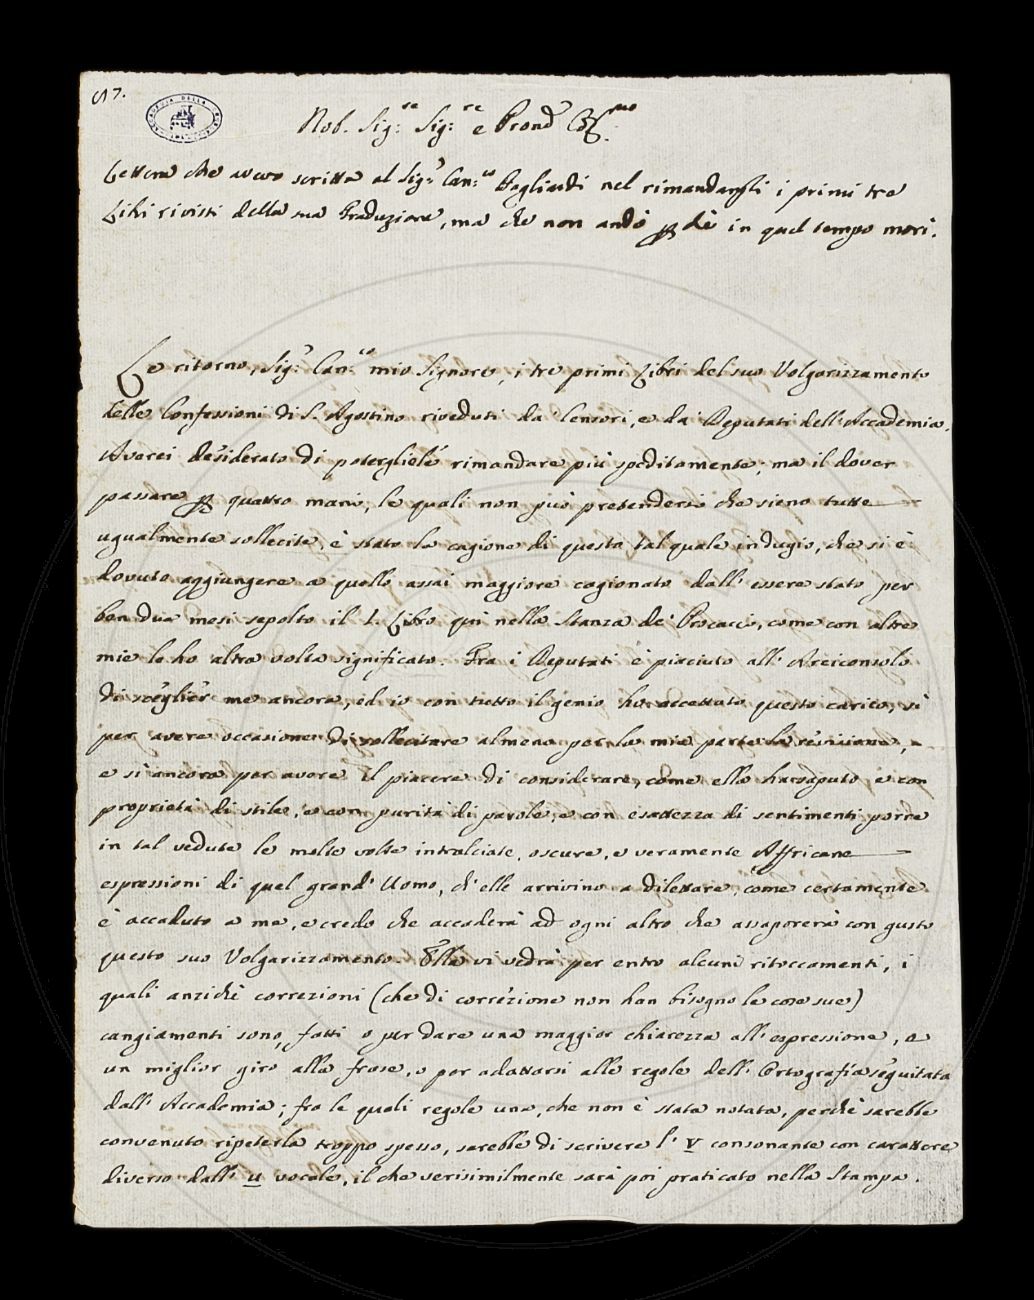 57.
Nob. Sig.re Sig.re e Pron.
Lettera che avevo scritta al Sig.r Can.co Gagliardi nel rimandargli i primi tre
Libri rivisti della sua Traduzione, ma che non andò p chè in quel tempo morì.
Le ritorno, Sig.r Can.co mio Signore, i tre primi Libri del suo Volgarizzamento
delle Confessioni di S. Agostino riveduti da' Censori, e da' Deputati dell'Accademia.
Averei desiderato di potergliele rimandare più speditamente; ma il dover
passare p quattro mani, le quali non può pretendersi che sieno tutte
ugualmente sollecite, è stato la cagione di questo tal quale indugio, che si è
dovuto aggiungere a quello assai maggiore cagionato dall'essere stato per
ben dua mesi sepolto il 1. Libro qui nella Stanza de' Procacci, come con altre
mie le ho altra volta significato. Fra i Deputati è piaciuto all'Arciconsolo
di sceglier me ancora, ed io con tutto il genio ho accettato questo carico, sì
per avere occasione di sollecitare almeno per la mia parte la revisione,
e sì ancora per avere il piacere di considerare, come ella ha saputo, e con
proprietà di stile, e con purità di parole, e con esattezza di sentimenti porre
in tal vedute le molte volte intralciate, oscure, e veramente Affricane
espressioni di quel grand'Uomo, ch'elle arrivino a dilettare, come certamente
è accaduto a me, e credo che accaderà ad ogni altro che assaporerà con gusto
questo suo Volgarizzamento. Ella vi vedrà per entro alcuni ritoccamenti, i
quali anzichè correzioni (che di correzione non han bisogno le cose sue)
cangiamenti sono, fatti o per dare una maggior chiarezza all'espressione, o
un miglior giro alla frase, o per adattarsi alle regole dell'Ortografia seguitata
dall'Accademia; fra le quali regole una, che non è stata notata, perchè sarebbe
convenuto ripeterla troppo spesso, sarebbe di scrivere l'V consonante con carattere
diverso dall'u vocale, il che verisimilmente sarà poi praticato nella Stampa.